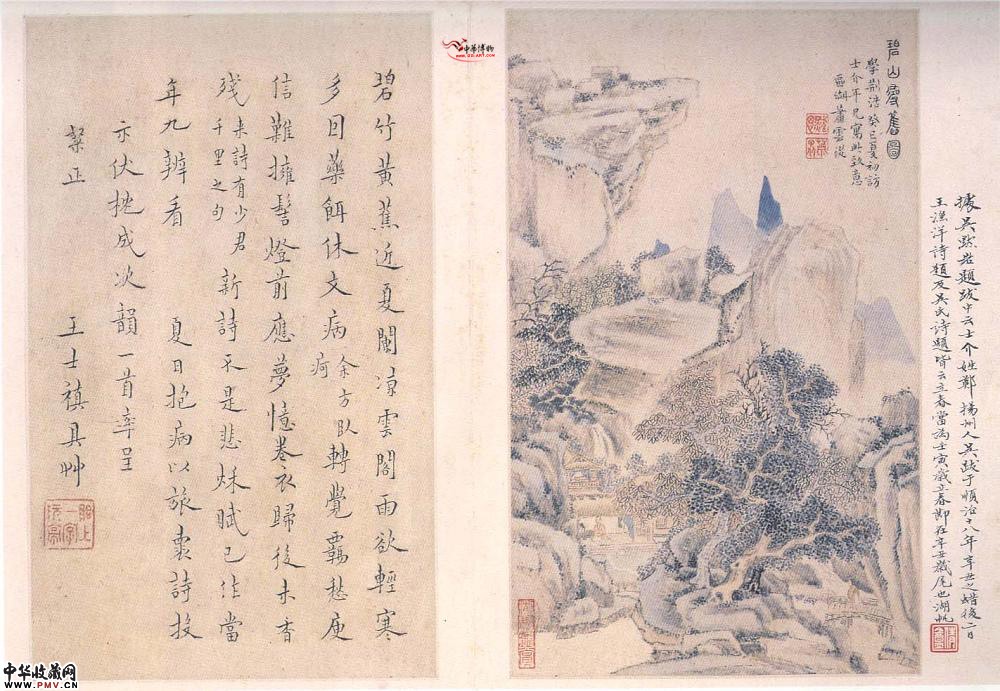 據吳默岩題跋中云士介姓鄭揚州人吳跋于順治十八年辛丑之蜡後二日
王漁洋詩題及吳氏詩題皆云立春當為壬寅歲立春即在辛丑歲尾也湖帆
碧山尋舊圖
學荊浩癸巳夏初訪
士介年兄寓此致意
區湖蕭雲從
中华博物
碧竹黃蕉近夏闌涼雲閣雨欲輕寒
多回藥餌休文病余方臥疴轉覺羈愁庾
信難擁髻燈前應夢憶卷衣歸後未香
殘來詩有少君千里之句新詩不是悲秌賦已作當
年九辨看 夏日抱病以旅褱詩投
示伏枕成次韻一首率呈
栔正
王士禛具艸
中华收藏网
www.PMV.CN